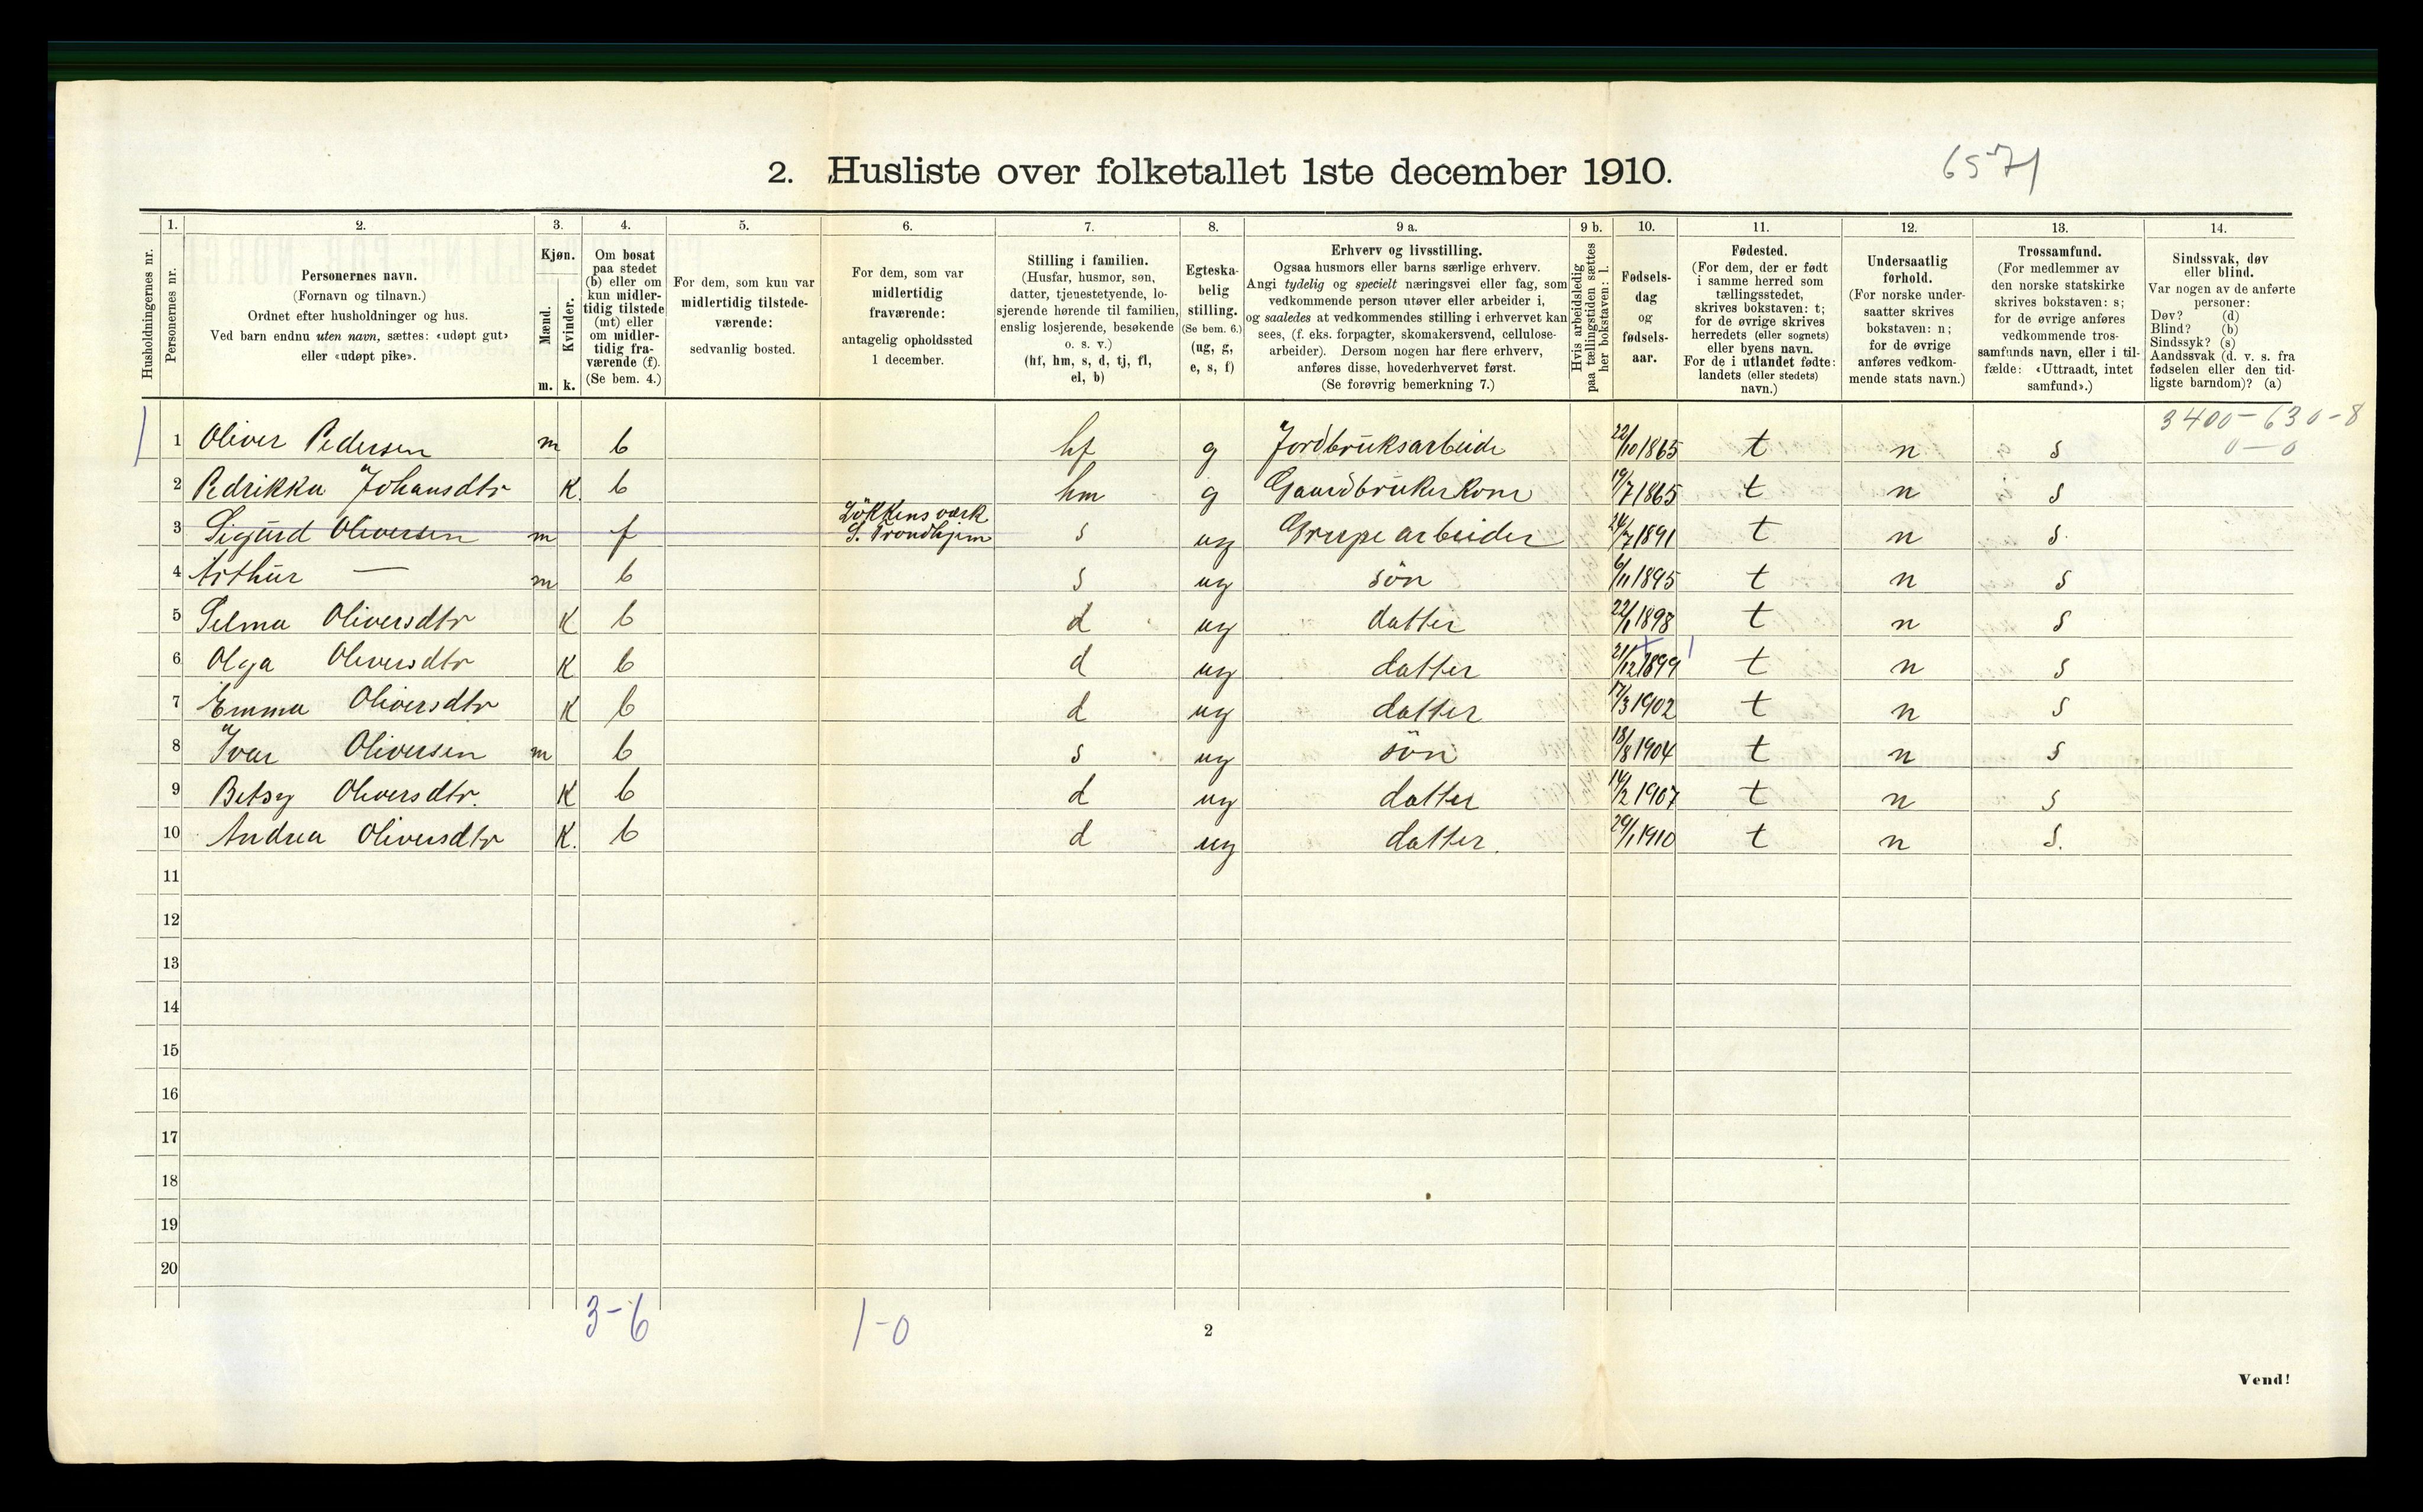 2. Husliste over folketallet 1ste december 1910.
6571
1. 2. 3. 4. 5. 6. 7. 8. 9 a. 9 b. 10. 11. 12. 13. 14.
Husholdningernes nr.
Personernes nr.
Personernes navn.
(Fornavn og tilnavn.)
Ordnet efter husholdninger og hus.
Ved barn endnu uten navn, sættes: «udøpt gut»
eller «udøpt pike».
Kjøn.
Mænd.
Kvinder.
m. k.
Om bosat
paa stedet
(b) eller om
kun midler-
tidig tilstede
(mt) eller
om midler-
tidig fra-
værende (f).
(Se bem. 4.)
For dem, som kun var
midlertidig tilstede-
værende:
sedvanlig bosted.
For dem, som var
midlertidig
fraværende:
antagelig opholdssted
1 december.
Stilling i familien.
(Husfar, husmor, søn,
datter, tjenestetyende, lo-
sjerende hørende til familien,
enslig losjerende, besøkende
o. s. v.)
(hf, hm, s, d, tj, fl,
el, b)
Egteska-
belig
stilling.
(Se bem. 6.)
(ug, g,
e, s, f)
Erhverv og livsstilling.
Ogsaa husmors eller barns særlige erhverv.
Angi tydelig og specielt næringsvei eller fag, som
vedkommende person utøver eller arbeider i,
og saaledes at vedkommendes stilling i erhvervet kan
sees, (f. eks. forpagter, skomakersvend, cellulose-
arbeider). Dersom nogen har flere erhverv,
anføres disse, hovederhvervet først.
(Se forøvrig bemerkning 7.)
Hvis arbeidsledig
paa tællingstiden sættes
her bokstaven: l.
Fødsels-
dag
og
fødsels-
aar.
Fødested.
(For dem, der er født
i samme herred som
tællingsstedet,
skrives bokstaven: t;
for de øvrige skrives
herredets (eller sognets)
eller byens navn.
For de i utlandet fødte:
landets (eller stedets)
navn.)
Undersaatlig
forhold.
(For norske under-
saatter skrives
bokstaven: n;
for de øvrige
anføres vedkom-
mende stats navn.)
Trossamfund.
(For medlemmer av
den norske statskirke
skrives bokstaven: s;
for de øvrige anføres
vedkommende tros-
samfunds navn, eller i til-
fælde: «Uttraadt, intet
samfund».)
Sindssvak, døv
eller blind.
Var nogen av de anførte
personer:
Døv? (d)
Blind? (b)
Sindssyk? (s)
Aandssvak (d. v. s. fra
fødselen eller den tid-
ligste barndom)? (a)
3400-630-8
0-0
1 1 Oliver Pedersen m b hf g Jordbruksarbeide 22/10 1865 t n s
2 Pedrikka Johansdtr K b hm g Gaardbruker Kone 19/7 1865 t n s
Løkkens værk
3 Sigurd Oliversen m f S. Trondhjem s ug Grupearbeider 24/7 1891 t n s
4 Arthur — m b s ug søn 6/11 1895 t n s
5 Selma Oliversdtr K b d ug datter 22/1 1898 t n s
6 Olga Oliversdtr K b d ug datter 21/12 1899 t n s
7 Emma Oliversdtr K b d ug datter 17/3 1902 t n s
8 Ivar Oliversen m b s ug søn 18/8 1904 t n s
9 Betsy Oliversdtr. K b d ug datter 14/2 1907 t n s
10 Andrea Oliversdtr K. b d ug datter. 29/1 1910 t n s.
11
12
13
14
15
16
17
18
19
20
3-6 1-0
2
Vend!